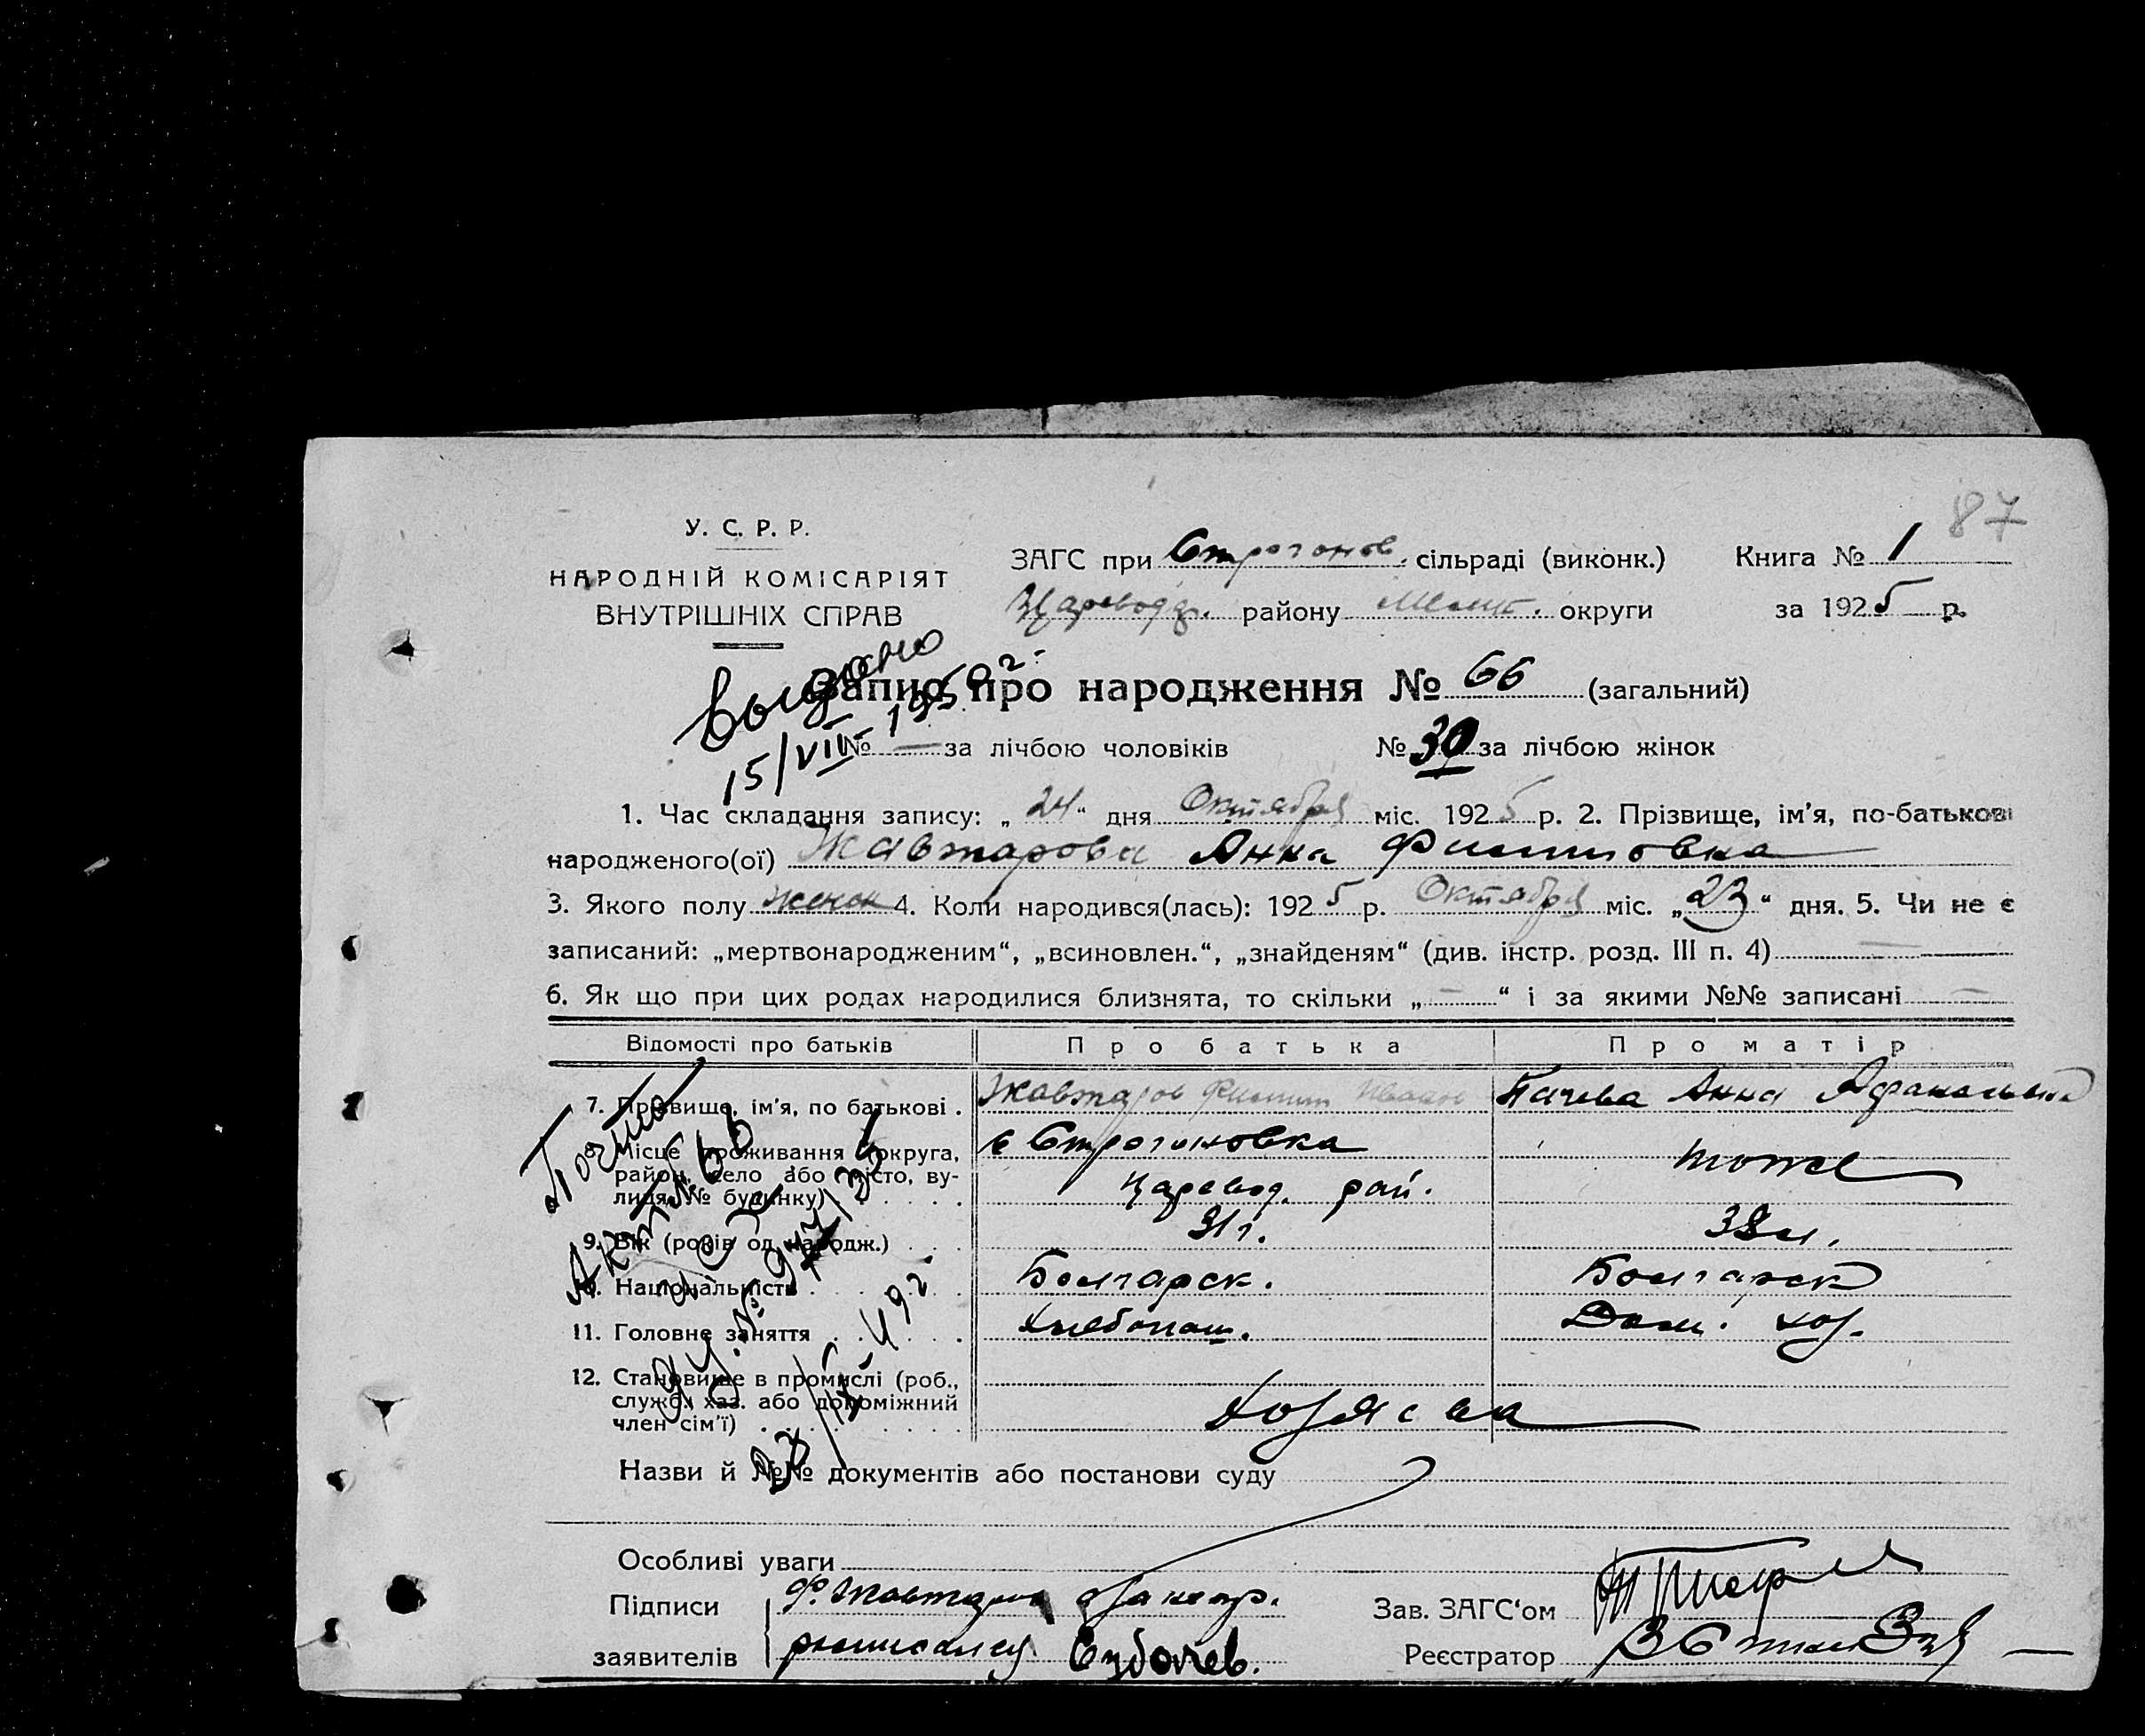 87
У. С. Р. Р.
НАРОДНІЙ КОМІСАРІЯТ
ВНУТРІШНІХ СПРАВ
ЗАГС при Строганов. сільраді (виконк.) Книга № 1
Царевод. району Мелит. округи за 1925 р.
Выдано
15/VIII- 1950 г.
Запис про народження № 66 (загальний)
№ — за лічбою чоловіків № 39 за лічбою жінок
1. Час складання запису: „24“ дня Октября міс. 1925 р. 2. Прізвище, ім'я, по-батькові
народженого(ої) Жавтарова Анна Филиповна
3. Якого полу женск 4. Коли народився(лась): 1925 р. Октября міс. „23“ дня. 5. Чи не є
записаний: „мертвонародженим“, „всиновлен.“, „знайденям“ (див. інстр. розд. III п. 4) —
6. Як що при цих родах народилися близнята, то скільки „—“ і за якими №№ записані —
Відомості про батьків Про батька Про матір
7. Прізвище, ім'я, по батькові . Жавтаров Филипп Иванов Пачева Анна Афанасьевна
8. Місце проживання (округа, район, село або місто, вулиця, № будинку) с Строгоновка Царевод. рай. тоже
9. Вік (років од народж.) 31 г. 38 л.
10. Національність Болгарск. Болгарск
11. Головне заняття Хлебопаш. Дом. хоз.
12. Становище в промислі (роб., службл. хаз. або допоміжний член сім'ї) Хозяева
Почта
Акт № 66
Назви й №№ документів або постанови суду
Особливі уваги
Підписи Ф. Жавтаров
заявителів
Зав. ЗАГС'ом
Реєстратор